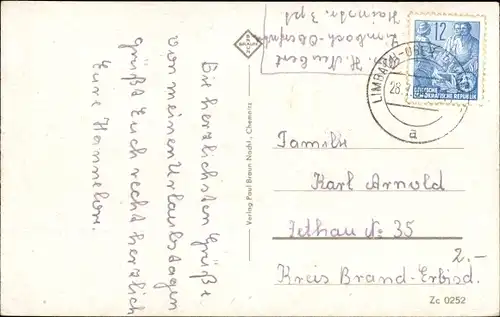 Die herzlichsten Grüße
von meinen Urlaubstagen
grüßt Euch recht herzlich
Eure Hannelore.
BRAUN
Verlag Paul Braun Nachf., Chemnitz
H. Neubert
Limbach-Oberfrohna
Hainstr. 3
12
DEUTSCHE
DEMOKRATISCHE REPUBLIK
LIMBACH-OBERFROHNA
28.
a
Familie
Karl Arnold
Zethau No 35
Kreis Brand-Erbisd.
2.-
Zc 0252